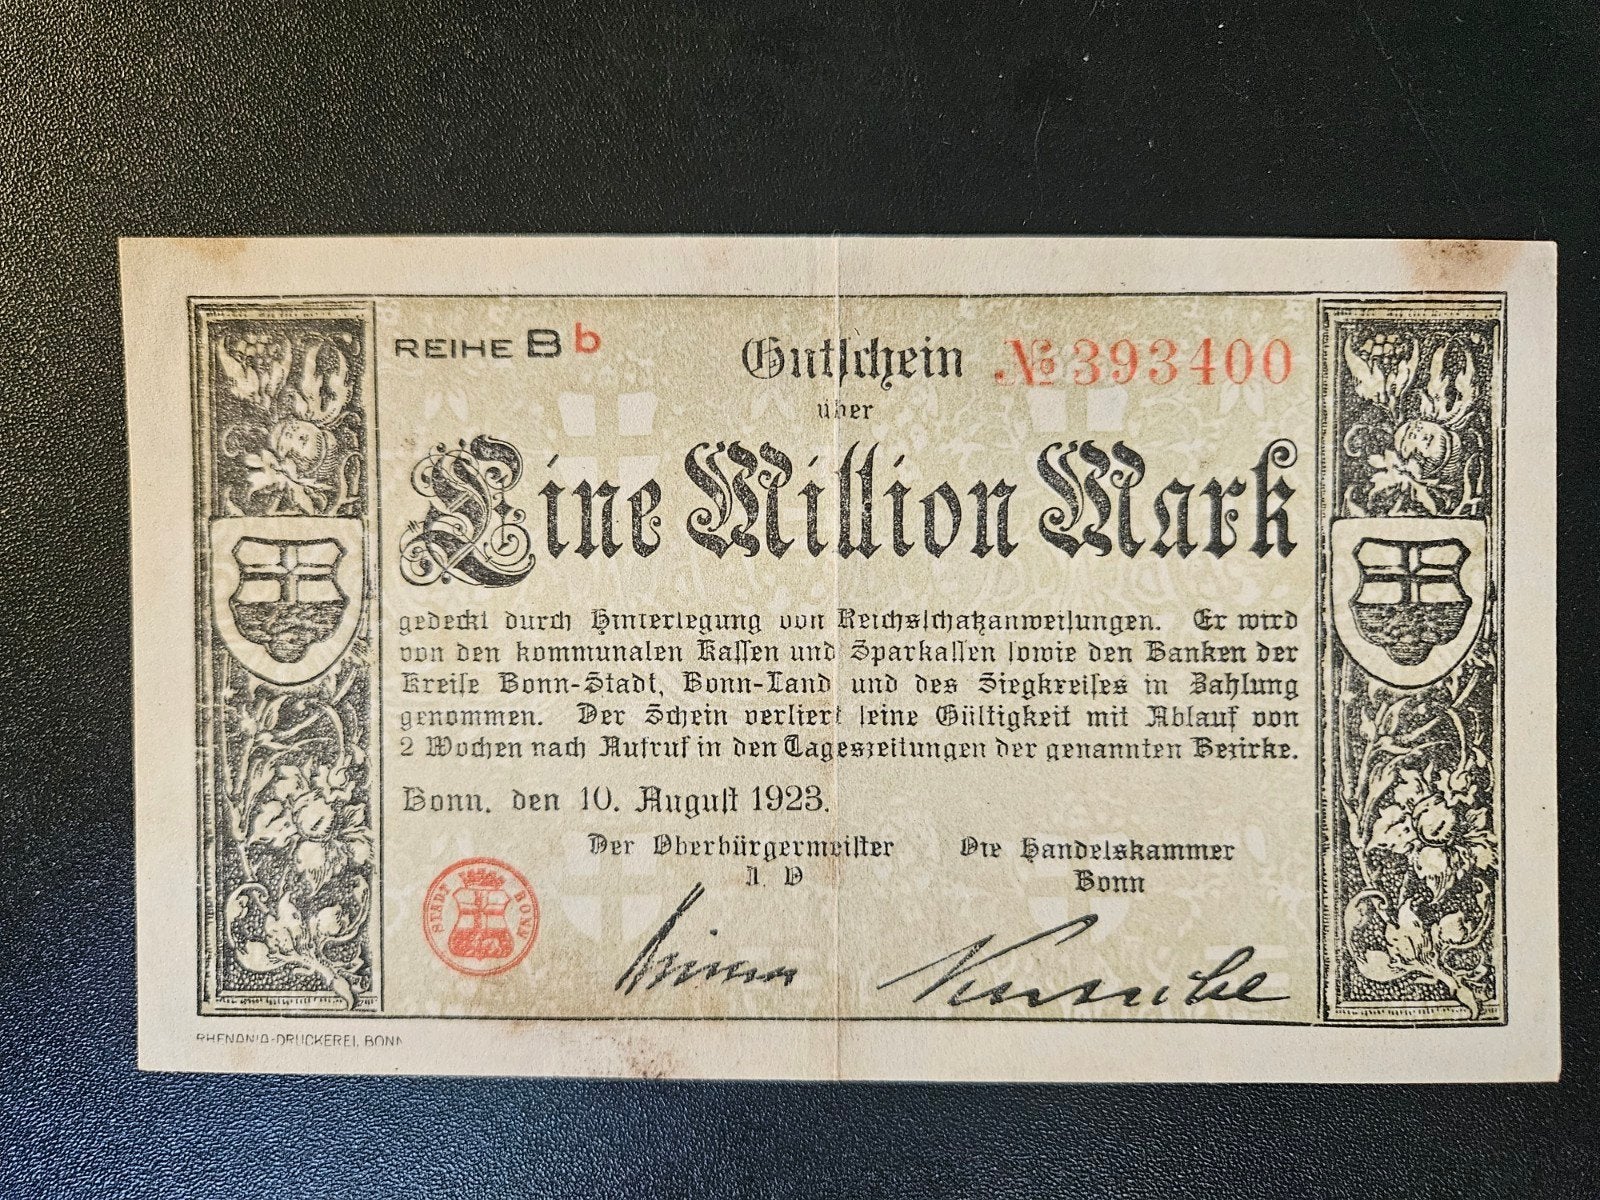 REIHE B b
Gutschein № 393400
über
Eine Million Mark
gedeckt durch Hinterlegung von Reichsschatzanweisungen. Er wird
von den kommunalen Kassen und Sparkassen sowie den Banken der
Kreise Bonn-Stadt, Bonn-Land und des Siegkreises in Zahlung
genommen. Der Schein verliert seine Gültigkeit mit Ablauf von
2 Wochen nach Aufruf in den Tageszeitungen der genannten Bezirke.
Bonn, den 10. August 1923.
Der Oberbürgermeister
I. V
Die Handelskammer
Bonn
STADT BONN
RHENANIA-DRUCKEREI, BONN